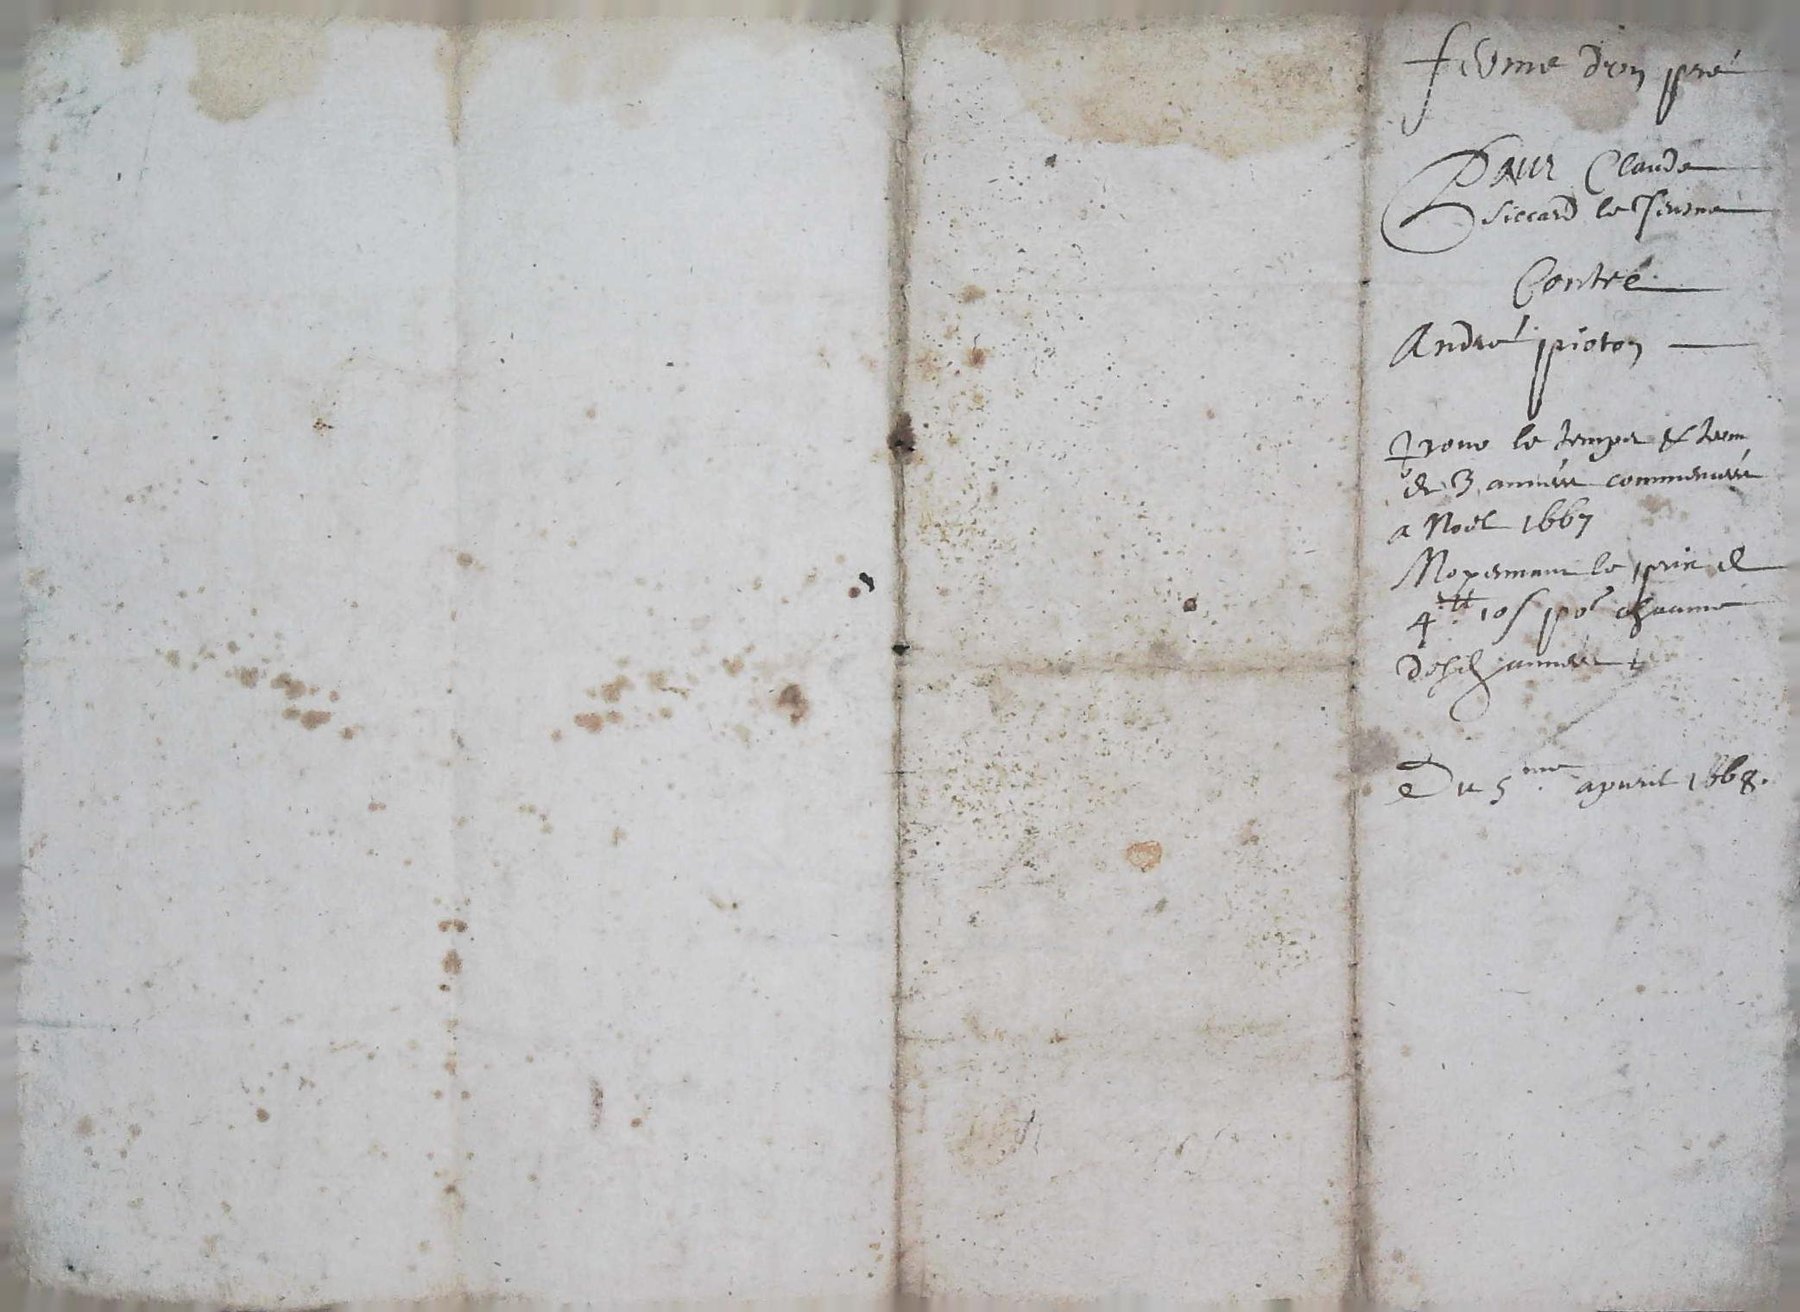 ferme d'un pré
Pour Claude
siccard le Jeusne
Contre
André pioton
pour le temps & term
de 3 années commencées
a Noël 1667
Moyennant le prix de
4 ₶ 10 s po^r chacune
desd années
Du 5^me apvril 1668.